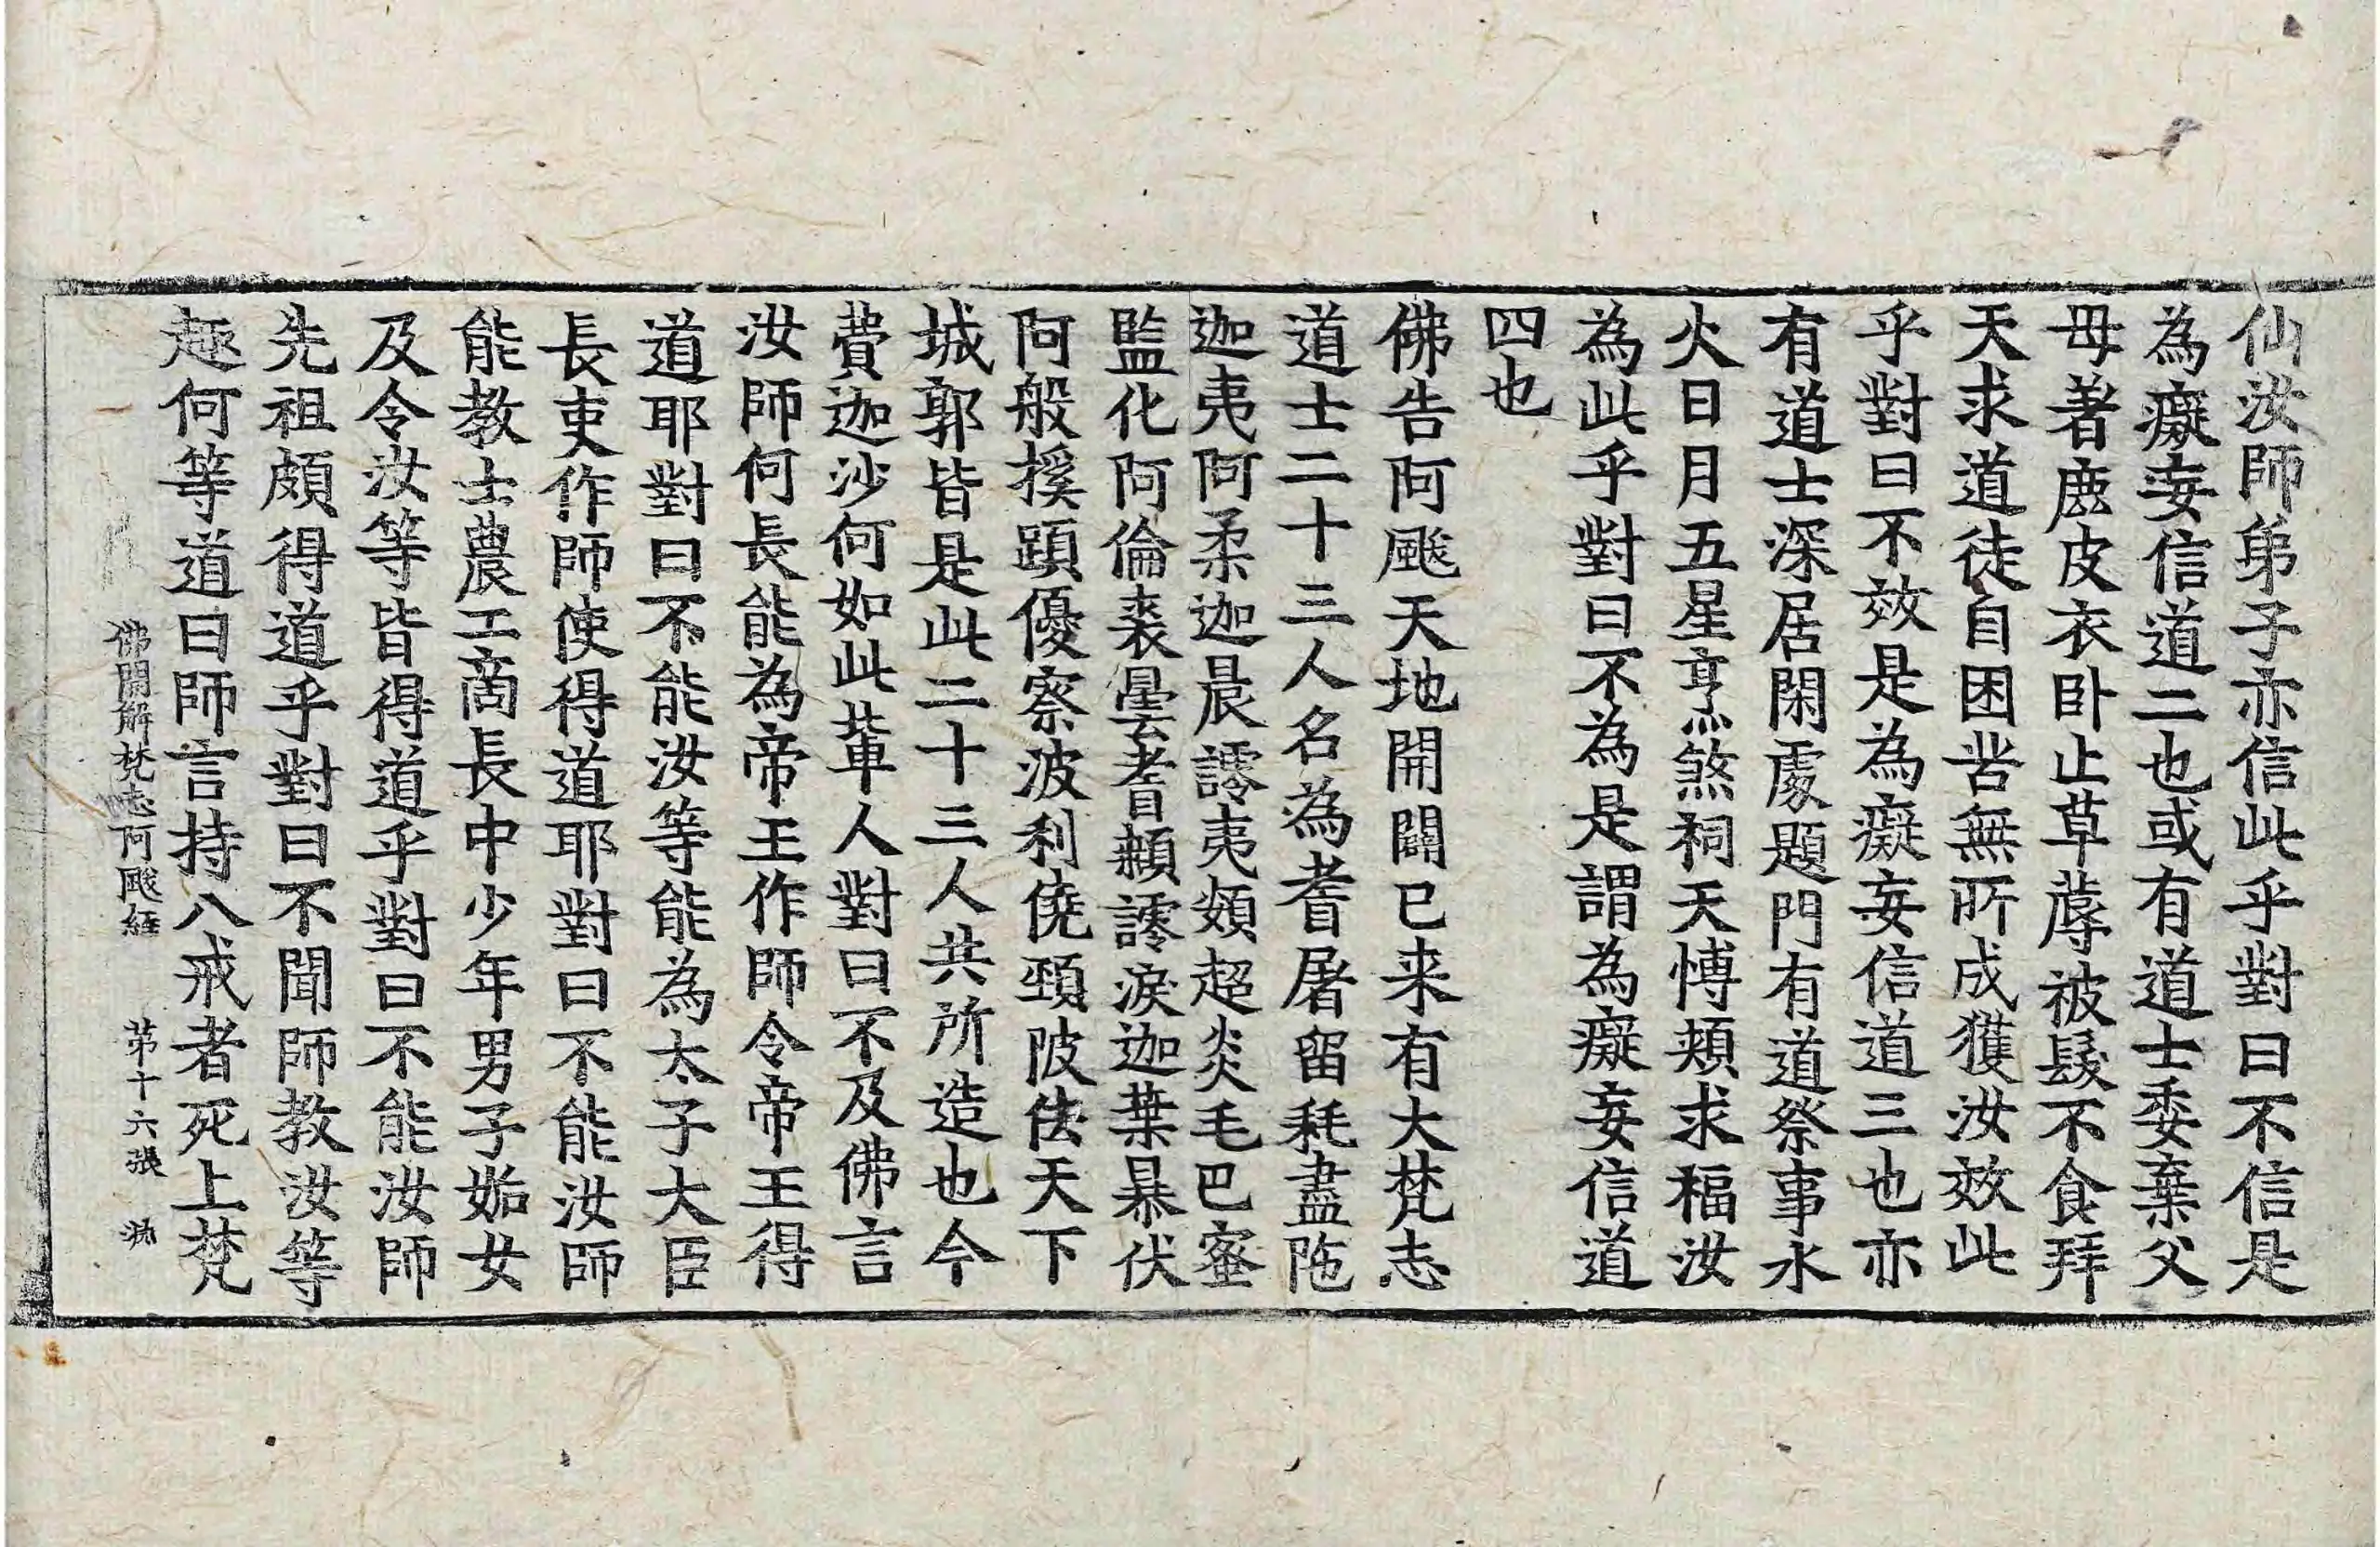 仙汝師弟子亦信此乎對曰不信是
為癡妄信道二也或有道士委棄父
母著鹿皮衣卧止草蓐被髮不食拜
天求道徒自困苦無所成獲汝效此
乎對曰不效是為癡妄信道三也亦
有道士深居閑處題門有道祭事水
火日月五星烹煞祠天愽頰求福汝
為此乎對曰不為是謂為癡妄信道
四也
佛告阿颰天地開闢已来有大梵志
道士二十三人名為耆屠留秏盡陁
迦夷阿柔迦晨謣夷頞超炎毛巴蜜
監化阿倫裘曇耆謣淚迦葉暴伏
阿般揬蹟優察波利僥頸陂佉天下
城郭皆是此二十三人共所造也今
費迦沙何如此軰人對曰不及佛言
汝師何長能為帝王作師令帝王得
道耶對曰不能汝等能為太子大臣
長吏作師使得道耶對曰不能汝師
能教士農工商長中少年男子姤女
及令汝等皆得道乎對曰不能汝師
先祖頗得道乎對曰不聞師教汝等
趣何等道曰師言持八戒者死上梵
佛開解梵志阿颰經 第十六張